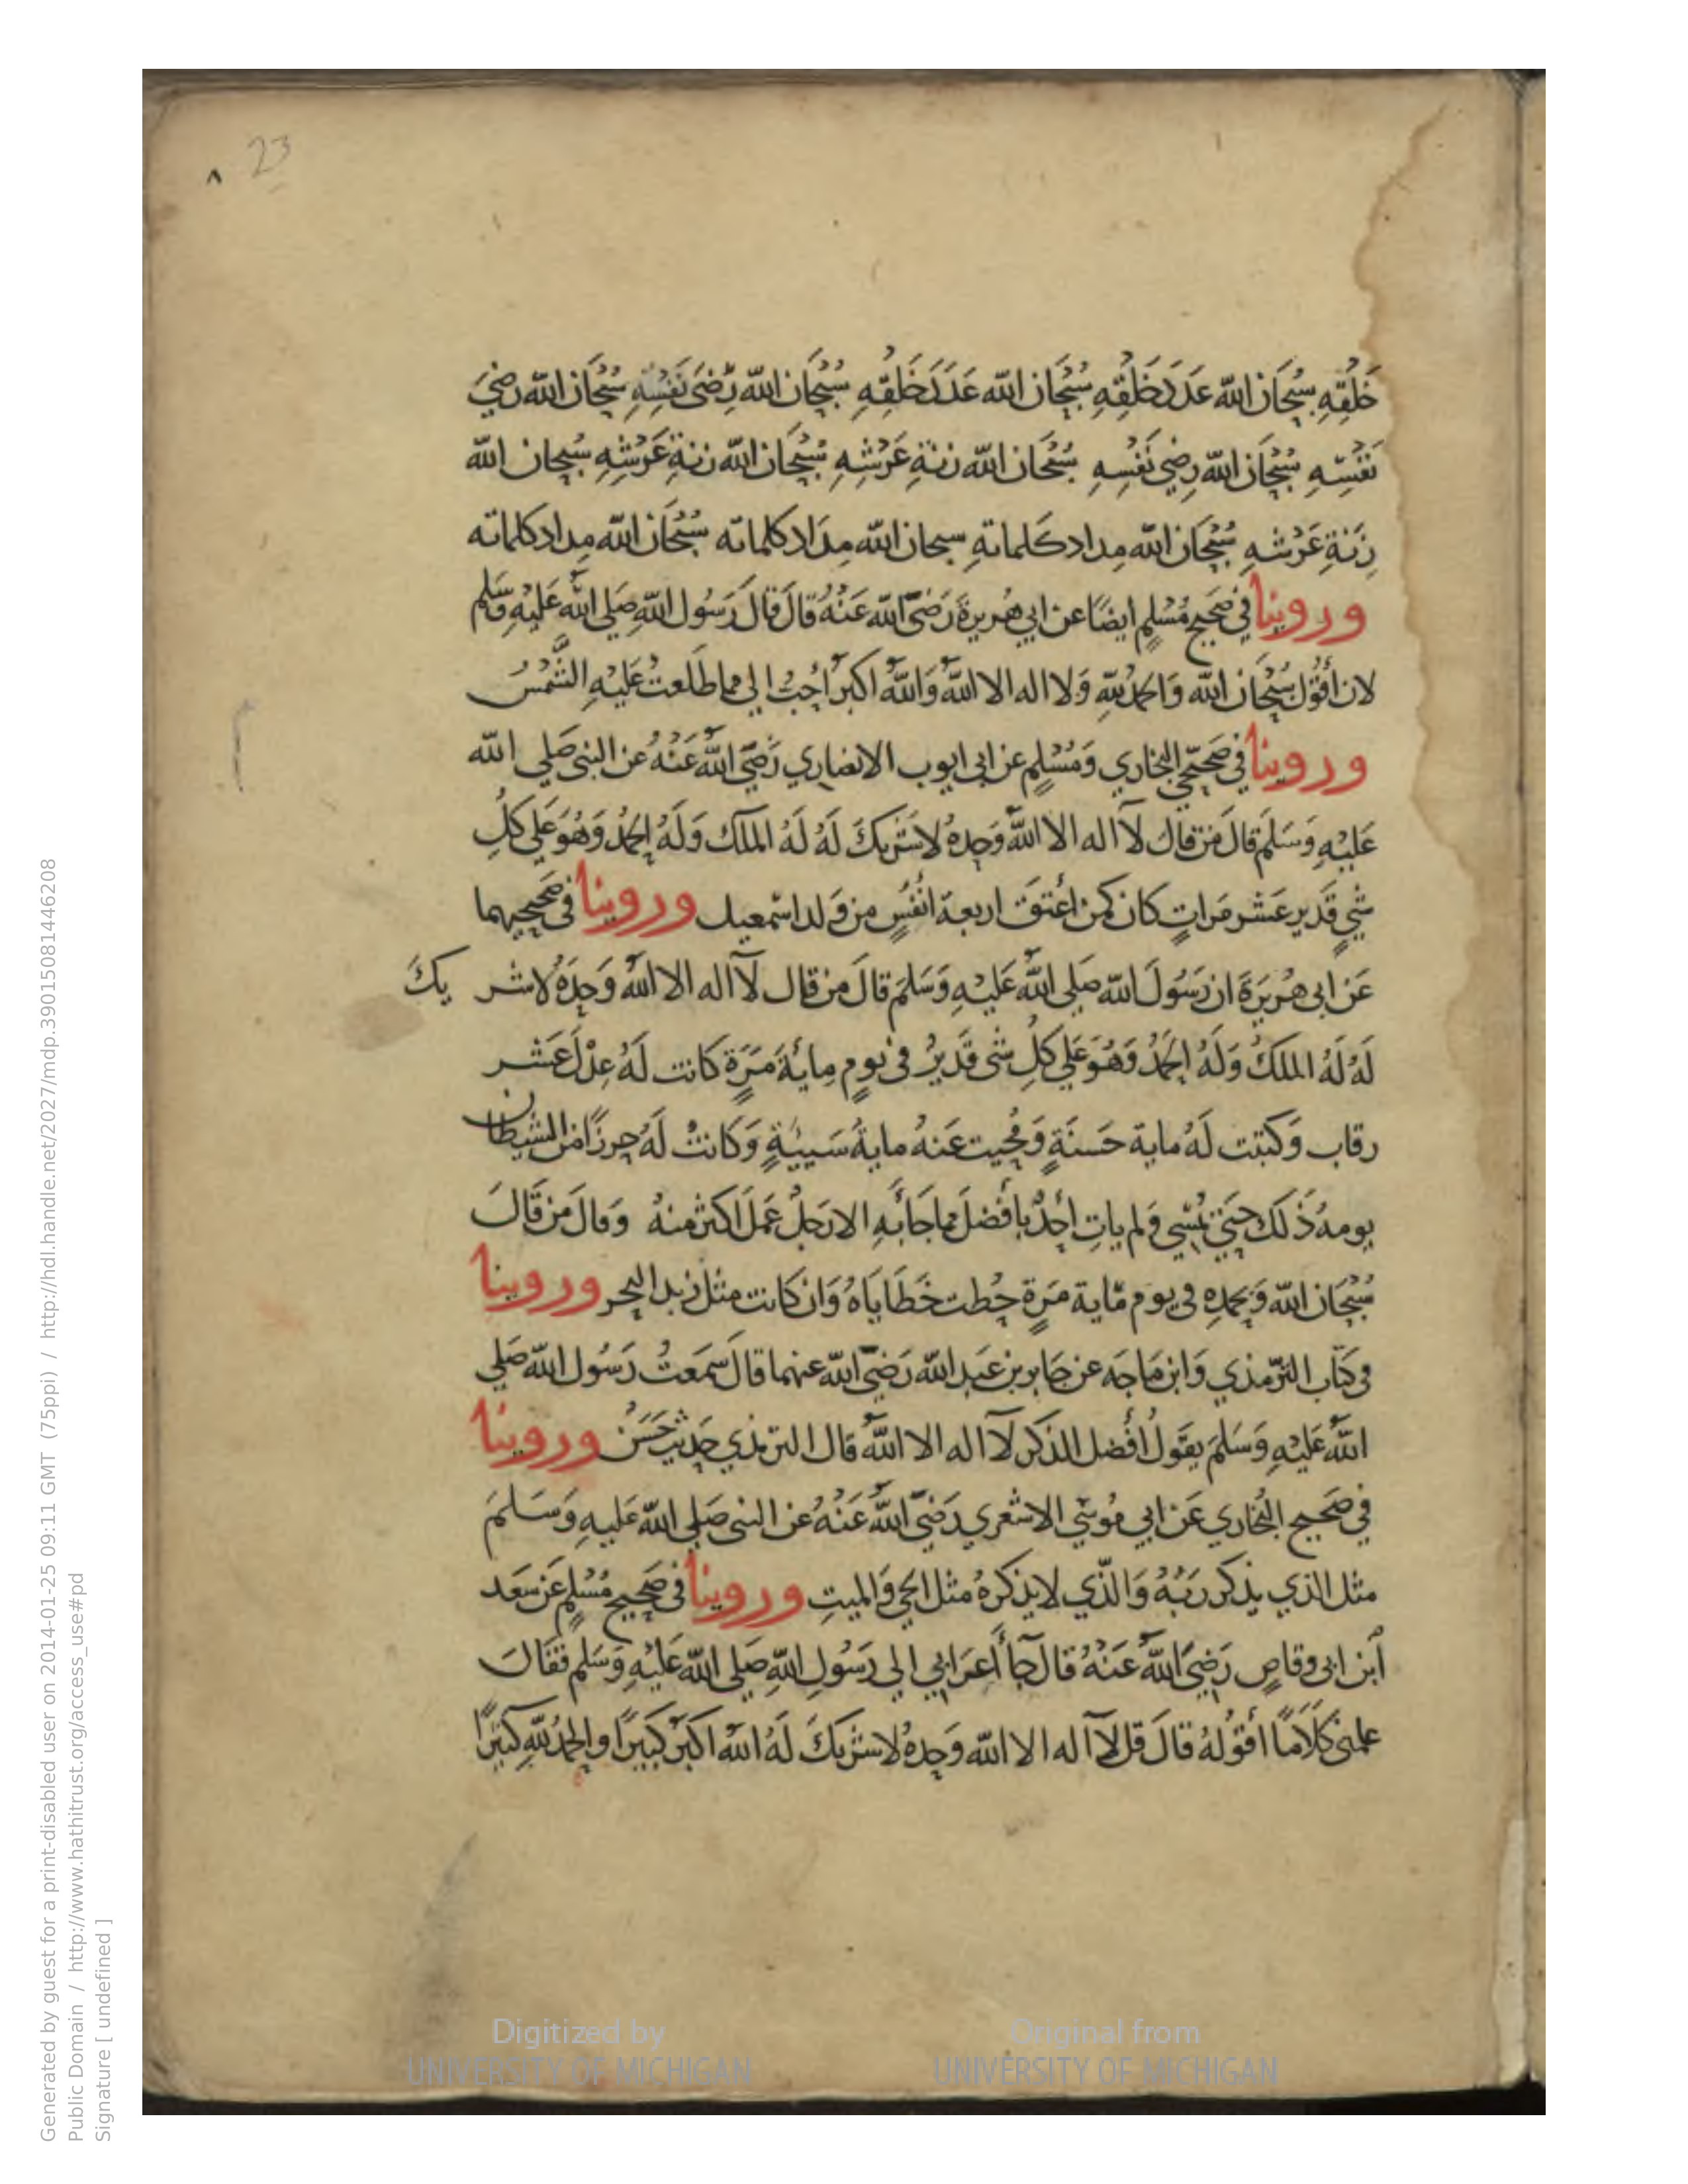 23
٨
خَلْقِهِ سُبْحَانَ الله عَدَدَ خَلْقِهِ سُبْحَانَ الله عَدَدَ خَلْقِهِ سُبْحَانَ الله رِضَى نَفْسِهِ سُبْحَانَ الله رضَى
نَفْسِهِ سُبْحَانَ الله رِضَي نَفْسِهِ سُبْحَانَ الله زنةِ عَرْشِهِ سُبْحَانَ الله زنةِ عَرْشِهِ سُبحان الله
زِنَةِ عَرْشهِ سُبْحَانَ الله مداد كلماتهِ سبحان الله مِدَاد كلماته سُبْحَانَ الله مِداد كلماته
وروينا في صَحيح مُسْلِمٍ ايضًا عن ابي هُريرةَ رَضيَ الله عَنْهُ قالَ قالَ رَسُول اللهِ صَلي الله عَليْهِ وَسَلم
لان أقُولَ سُبْحَانَ الله وَالحمْدُ للهِ وَلا اله الا اللهُ وَاللهُ اكبرُ أحَبُّ الي مما طَلَعَتْ عَليْهِ الشَّمْسُ
وروينا في صَحيحَي البخاري وَمُسْلِمٍ عن ابي ايوب الانصاري رَضيَ اللهُ عَنْهُ عن النبي صَلي الله
عَليْهِ وَسَلَم قالَ مَن قالَ لآ اله الا اللهُ وَحدهُ لاشَرِيكَ لَهُ لَهُ الملك وَلَهُ الحمْدُ وَهُوَ عَلي كلِ
شيٍ قَدير عَشر مَراتٍ كان كمن اعْتَقَ اربعة انْفُسٍ من وَلد اسْمعيل وروينا في صَحيحيهما
عَن ابي هُريرَةَ ان رَسُولَ الله صَلي اللهُ عَليْهِ وَسَلمَ قالَ من قال لآ اله الا اللهُ وَحدَهُ لاشر يكَ
لَهُ لَهُ الملكُ وَلَهُ الحمْدُ وَهُوَ عَلي كلِ شي قَديرٌ في يومٍ مِايَةَ مَرَةٍ كَانت لَهُ عِدْلَ عَشر
رقاب وَكتبت لَهُ ماية حَسنَةٍ وَمُحيت عَنهُ مايةُ سَييةٍ وَكانتْ لَهُ حِرزًا من الشيطان
يومهُ ذَلك حَتي يمْسي وَلم ياتِ أحَدٌ بأفضلَ مما جَاَ بهِ الا رَجلٌ عَملَ اكثر منهُ وَقالَ مَن قَالَ
سُبْحَانَ الله وَبحمدِهِ في يوم مّاية مَرةٍ حُطت خَطَايَاهُ وَان كانت مثل زبد البحر وروينا
في كتَاب الترّمذي وَابن مَاجَه عن جَابر بن عَبد الله رَضيَ الله عنهما قالَ سَمعتُ رَسُول الله صَلي
اللهُ عَليْهِ وَسَلمَ يقولُ أفْضل الذكر لآ اله الا اللهُ قال الترمذي حَديث حَسَنٌ وروينا
في صَحيح البُخاري عَن ابي مُوسَي الاشعري رَضيَ اللهُ عَنْهُ عن النبي صَلي الله عَليهِ وَسَلمَ
مثل الذي يذكر ربَهُ وَالذّي لا يذكرهُ مثل الحي وَالميتِ وروينا في صَحيح مُسْلِم عَن سَعد
أبن ابي وقاصٍ رَضيَ اللهُ عَنْهُ قالَ جآَ أعرَابي الي رَسُولِ اللهِ صَلي الله عَليْهِ وَسَلم فقَالَ
علمني كَلَامًا اقولهُ قالَ قل لآ اله الا الله وَحدهُ لاشَريكَ لَهُ اللهُ اكبَر كَبيرًا والحَمدُ للهِ كثيرًا
Generated by guest for a print-disabled user on 2014-01-25 09:11 GMT (75ppi) / http://hdl.handle.net/2027/mdp.39015081446208
Public Domain / http://www.hathitrust.org/access_use#pd
Signature [ undefined ]
Digitized by
UNIVERSITY OF MICHIGAN
Original from
UNIVERSITY OF MICHIGAN